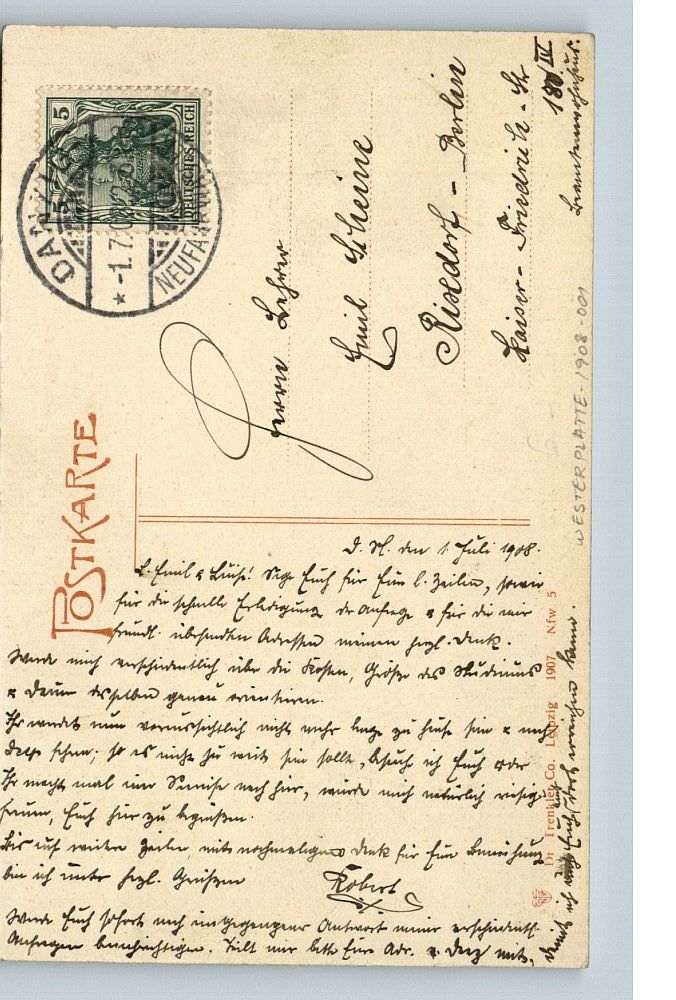 POSTKARTE
5 DEUTSCHES REICH
DANZIG
* -1.7.0
NEUFAHRW
Herrn Lehrer
Emil Scheine
Rixdorf - Berlin
Kaiser-Friedrich-Str
180/IV
Beamtenwohnhaus.
WESTERPLATTE-1908-001
D. Nf. den 1. Juli 1908.
L. Emil & Luise! Sage Euch für Eure l. Zeilen, sowie
für die schnelle Erledigung der Anfrage & für die mir
freundl. übersandten Adressen meinen herzl. Dank.
Werde mich verschiedentlich über die Kosten, Größe des Studiums
& Dauer desselben genau orientieren.
Ihr werdet nun voraussichtlich nicht mehr lange zu Hause sein & nach
fahren; so es nicht zu weit sein sollte, besuch ich Euch oder
Ihr macht mal eine Reise nach hier, würde mich natürlich riesig
freuen, Euch hier zu begrüßen.
Bis auf weitere Zeilen, mit nochmaligem Dank für Eure Bemühung
bin ich unter herzl. Grüßen
Robert
Werde Euch sofort nach eingegangener Antwort meiner
Anfragen benachrichtigen. Teilt mir bitte Eure Adr. mit,
damit ich Euch doch erreichen kann.
Dr Trenkler Co. Leipzig 1907 Nfw 5